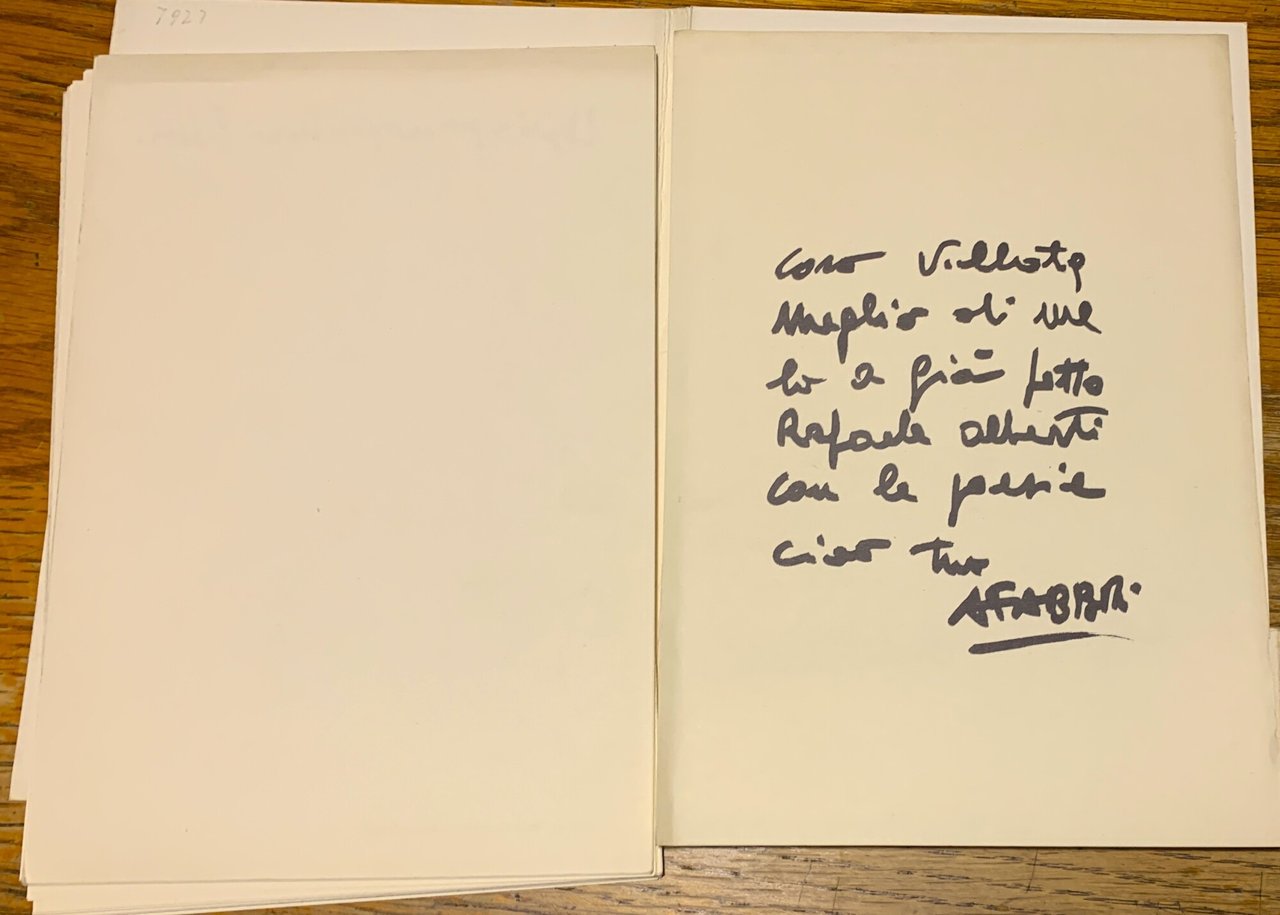 7927
Caro Villota
Meglio di me
lo a già fatto
Rafaele alberti
con le poesie
ciao tuo
AFABBRI